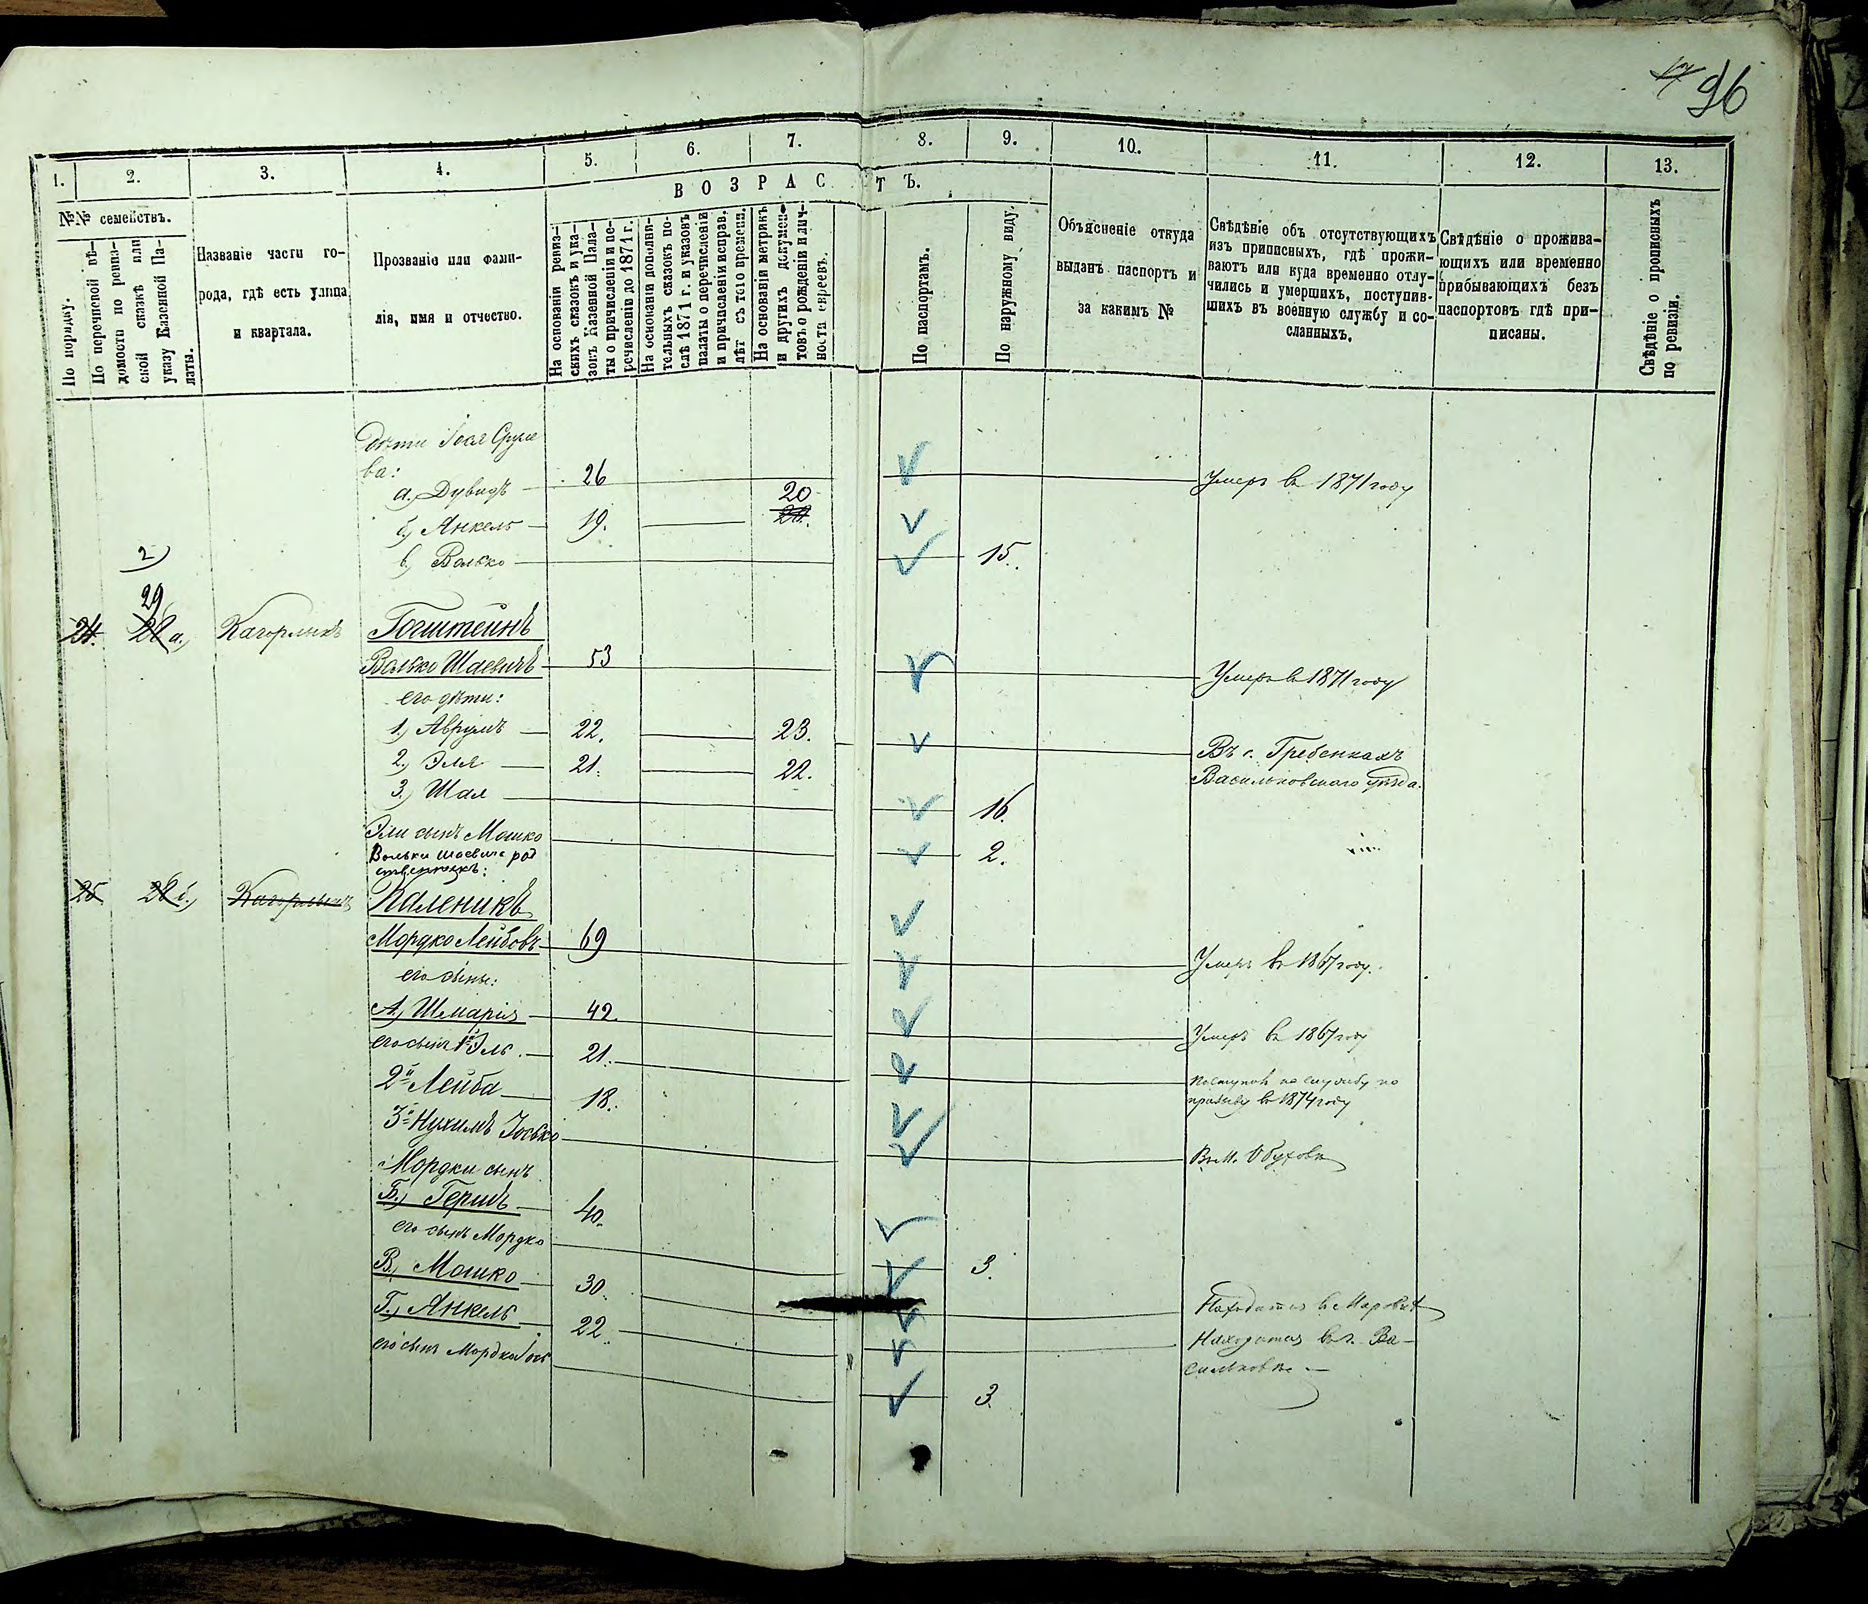 96
1.
2.
3.
4.
5.
6.
7.
8.
9.
10.
11.
12.
13.
ВОЗРАСТЪ.
№№ семействъ.
По порядку.
По перечневой вѣ-
домости по ревиз-
ской сказкѣ или
указу Казенной Па-
латы.
Названіе части го-
рода, гдѣ есть улица
и квартала.
Прозваніе или фами-
лія, имя и отчество.
На основаніи ревиз-
скихъ сказокъ и ука-
зокъ Казенной Пала-
ты о причисленіи и пе-
речисленіи до 1871 г.
На основаніи дополни-
тельныхъ сказокъ по-
слѣ 1871 г. и указовъ
палаты о перечисленіи
и причисленіи исправ.
лѣт съ того времени.
На основаніи метрикъ
и другихъ докумен-
товъ о рожденіи и лич-
ности евреевъ.
По паспортамъ.
По наружному виду.
Объясненіе откуда
выданъ паспортъ и
за какимъ №
Свѣдѣніе объ отсутствующихъ
изъ приписныхъ, гдѣ прожи-
ваютъ или куда временно отлу-
чились и умершихъ, поступив-
шихъ въ военную службу и со-
сланныхъ.
Свѣдѣніе о прожива-
ющихъ или временно
прибывающихъ безъ
паспортовъ гдѣ при-
писаны.
Свѣдѣніе о прописныхъ
по ревизіи.
дѣти Іося Сруле
ва:
а. Дувидъ 26 Умеръ въ 1871 году
20
б) Янкель 19.
в) Волько 15.
2)
29
24. 28 а) Кагорлыкъ Гогштейнъ
Волько Шаевичъ 53 Умеръ въ 1871 году
его дѣти:
1) Аврумъ 22. 23. Въ с. Гребенкахъ
2) Эля 21. 22. Васильковскаго уѣзда.
3) Шая 16.
Эли сынъ Мошко 2.
Вольки Шаевича род
ственникъ:
25. 28 б) Кагорлыкъ Каленикъ
Мордко Лейбовъ 69 Умеръ въ 1867 году.
его сыны:
А) Шмарія 42. Умеръ въ 1867 году
его сынъ 1й Эль 21. Поступилъ на службу по
призыву въ 1874 году
2й Лейба 18.
3й Нухимъ Іосько Въ м. Обухови
Мордки сынъ
Б) Гершъ 40.
его сынъ Мордко 3.
В) Мошко 30. Находится въ
Г) Янкель 22. Находится въ г. Ва-
сильковѣ
его сынъ Мордко 3.